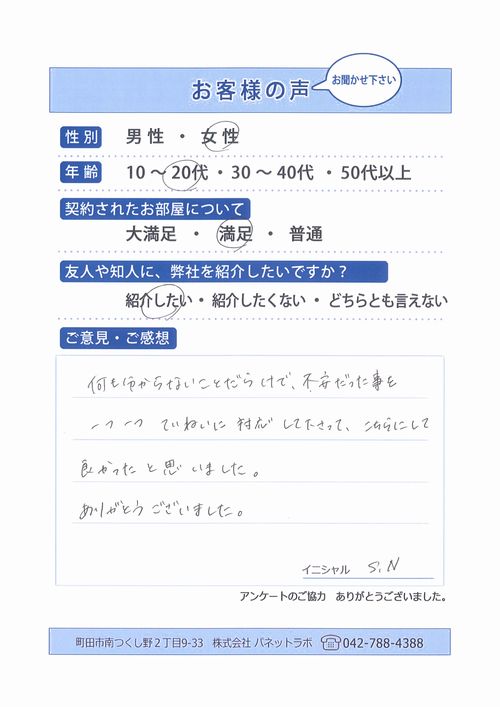 お客様の声
お聞かせ下さい
性別 男性 ・ 女性
年齢 10～20代 ・ 30～40代 ・ 50代以上
契約されたお部屋について
大満足 ・ 満足 ・ 普通
友人や知人に、弊社を紹介したいですか？
紹介したい ・ 紹介したくない ・ どちらとも言えない
ご意見・ご感想
何も分からないことだらけで、不安だった事を
一つ一つ ていねいに 対応して下さって、こちらにして
良かったと思いました。
ありがとうございました。
イニシャル S.N
アンケートのご協力 ありがとうございました。
町田市南つくし野２丁目9-33 株式会社 パネットラボ ☎042-788-4388